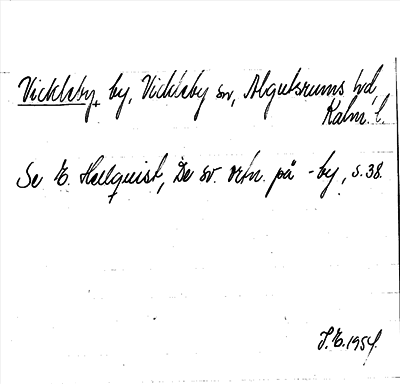 Vickleby, by, Vickleby sn, Algutsrums hd,
Kalm. l.
Se E. Hellquist, De sv. ortn. på -by, s. 38.
J.E. 1954.